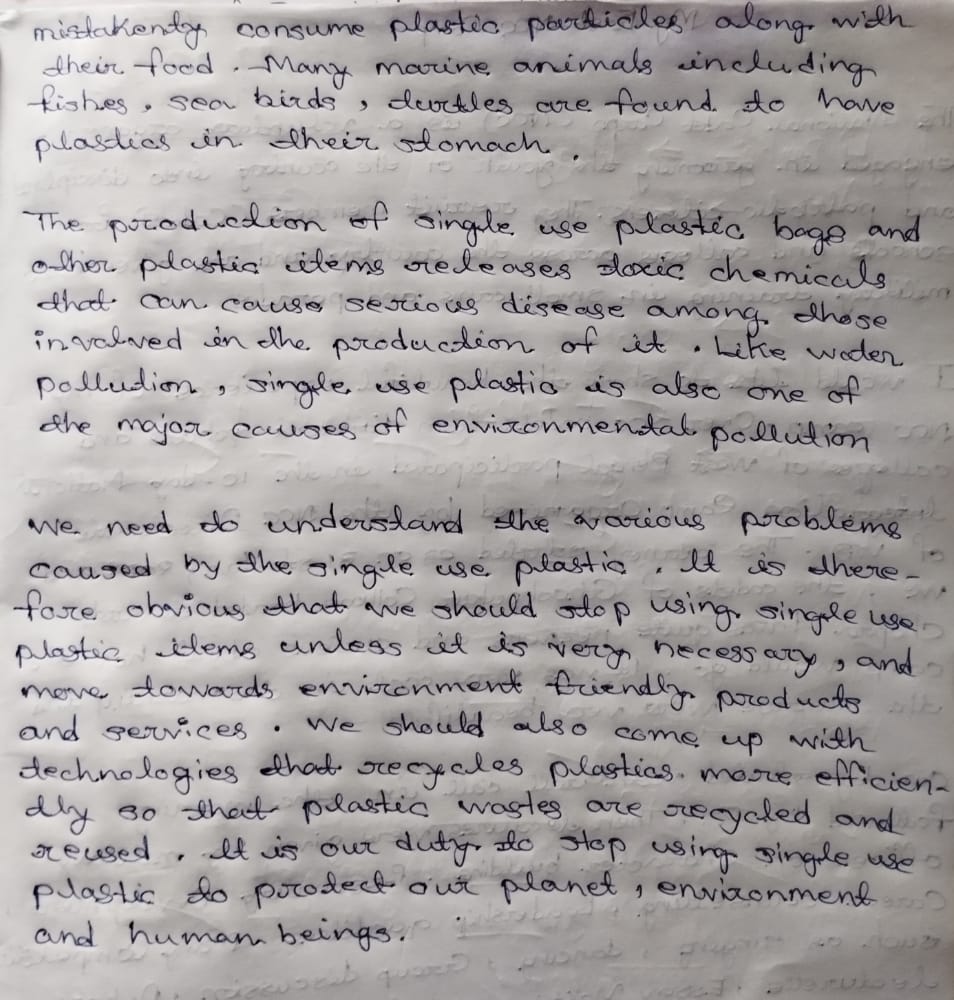 mistakenly consume plastic particles along with
their food. Many marine animals including
fishes, sea birds, turtles are found to have
plastics in their stomach.
The production of single use plastic bags and
other plastic items releases toxic chemicals
that can cause serious disease among those
involved in the production of it. Like water
pollution, single use plastic is also one of
the major causes of environmental pollution
We need to understand the various problems
caused by the single use plastic. It is there-
fore obvious that we should stop using single use
plastic items unless it is very necessary, and
move towards environment friendly products
and services. We should also come up with
technologies that recycles plastics more efficien-
tly so that plastic wastes are recycled and
reused. It is our duty to stop using single use
plastic to protect our planet, environment
and human beings.